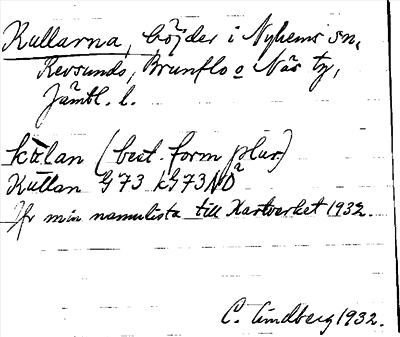 Kullarna, höjder i Nyhems sn,
Revsunds, Brunflo o Näs tg,
Jämtl. l.
kɷ̀lan (best. form plur)
Kullan G73 kG73NÖ
Jfr min namnlista till Kartverket 1932.
C. Lindberg 1932.